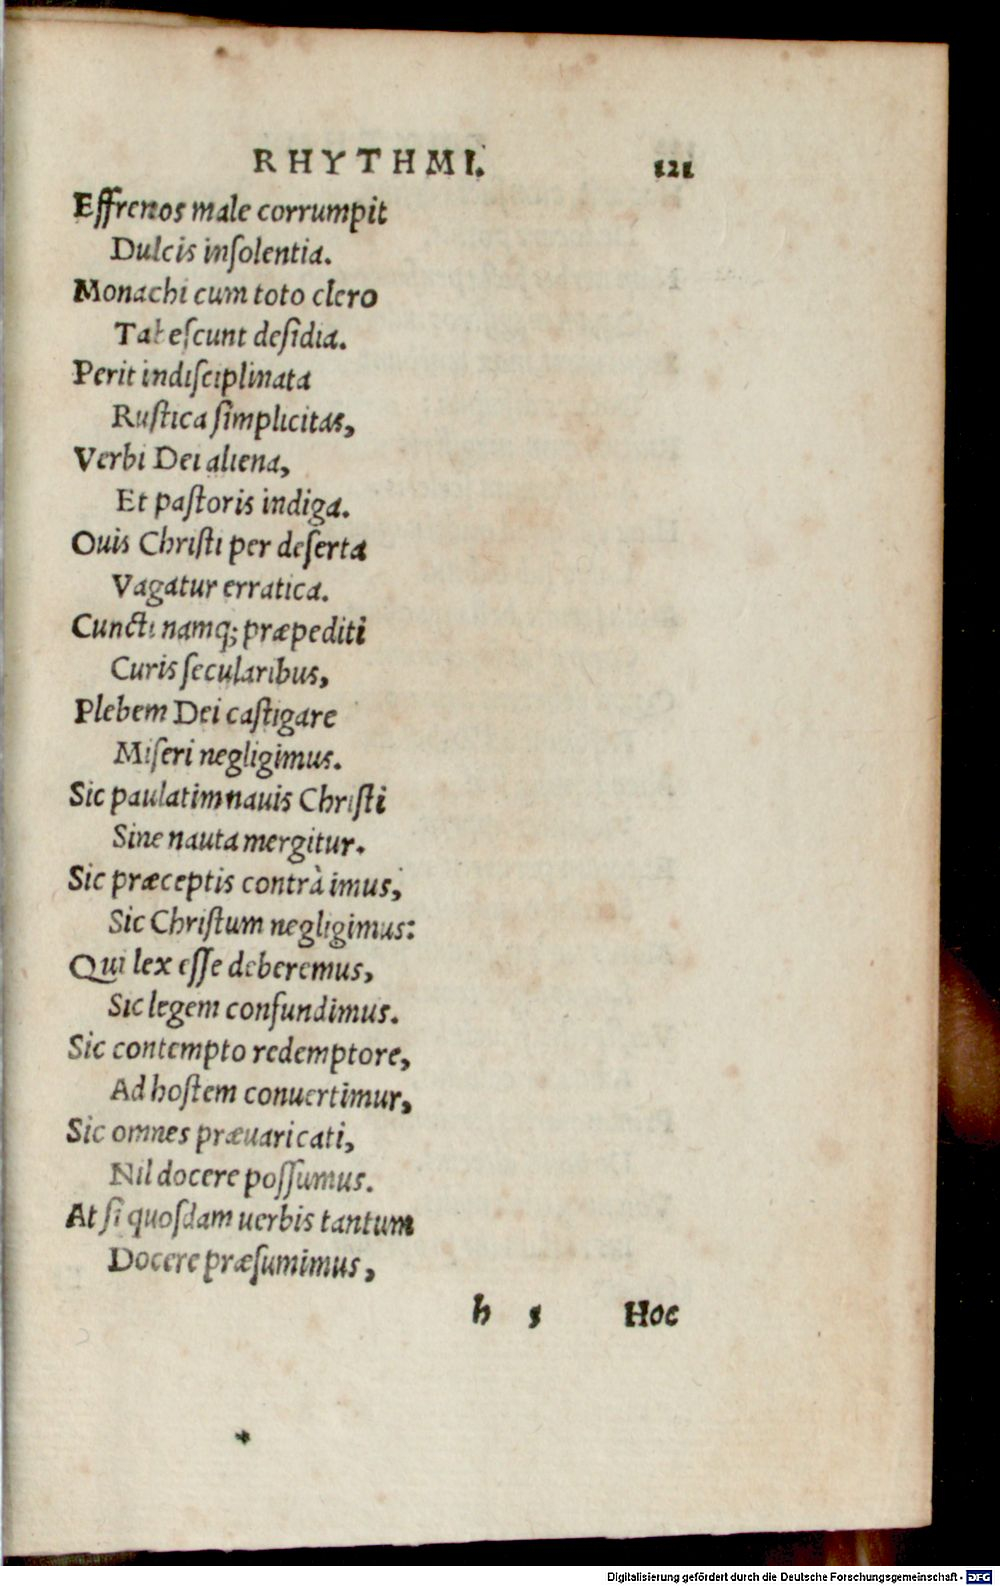 RHYTHMI. 121
Effrenos male corrumpit
Dulcis inſolentia.
Monachi cum toto clero
Tabeſcunt deſidia.
Perit indiſciplinata
Ruſtica ſimplicitas,
Verbi Dei aliena,
Et paſtoris indiga.
Ouis Chriſti per deſerta
Vagatur erratica.
Cuncti namq; præpediti
Curis ſecularibus,
Plebem Dei caſtigare
Miſeri negligimus.
Sic paulatim nauis Chriſti
Sine nauta mergitur.
Sic præceptis contrà imus,
Sic Chriſtum negligimus:
Qui lex eſſe deberemus,
Sic legem confundimus.
Sic contempto redemptore,
Ad hoſtem conuertimur,
Sic omnes præuaricati,
Nil docere poſſumus.
At ſi quoſdam uerbis tantum
Docere præſumimus,
h 5 Hoc
Digitalisierung gefördert durch die Deutsche Forschungsgemeinschaft - DFG